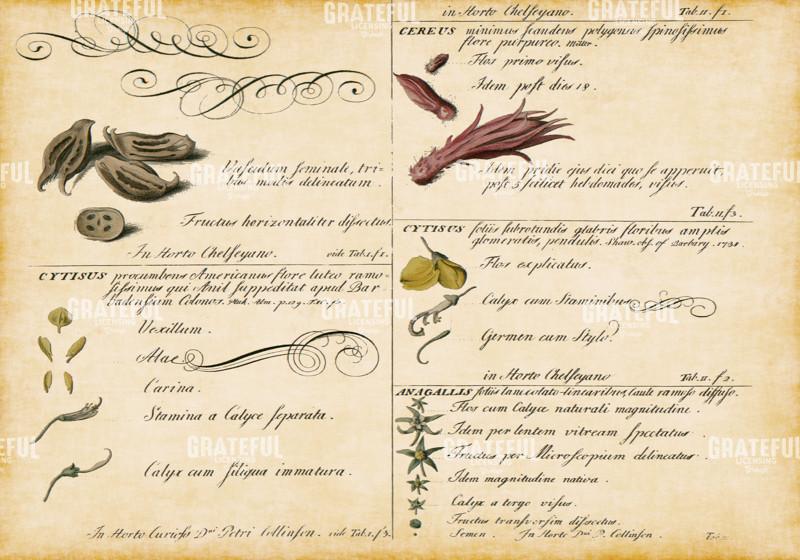 Vasculum seminale, tri-
bus modis delineatum.
Fructus horizontaliter dissectus.
In Horto Chelseyano. vide Tab.I.f.1.
CYTISUS procumbens Americanus flore luteo ramo-
sissimus qui Anil suppeditat apud Bar-
badensium Colonos.
Vexillum.
Alae.
Carina.
Stamina a Calyce separata.
Calyx cum siliqua immatura.
In Horto Curioss Dni Petri Collinson. vide Tab.I.f.3.
in Horto Chelseyano. Tab.II.f.1.
CEREUS minimus scandens polygonus spinosissimus
flore purpureo.
Flos primo visus.
Idem post dies 18.
Idem pridie ejus diei quo se apperuit,
post 5 scilicet hebdomades, visus.
Tab.II.f.3.
CYTISUS foliis subrotundis glabris floribus amplis
glomeratis, pendulis. Shaw. obs. of Barbary. 1738.
Flos explicatus.
Calyx cum Staminibus
Germen cum Stylo.
in Horto Chelseyano Tab.II.f.2.
ANAGALLIS foliis lanceolato-linearibus, caule ramoso diffuso.
Flos cum Calyce naturali magnitudine.
Idem per lentem vitream spectatus.
Fructus per Microscopium delineatus
Idem magnitudine nativa.
Calyx a tergo visus.
Fructus transversim dissectus.
Semen. In Horto Dni P. Collinson.
GRATEFUL
LICENSING